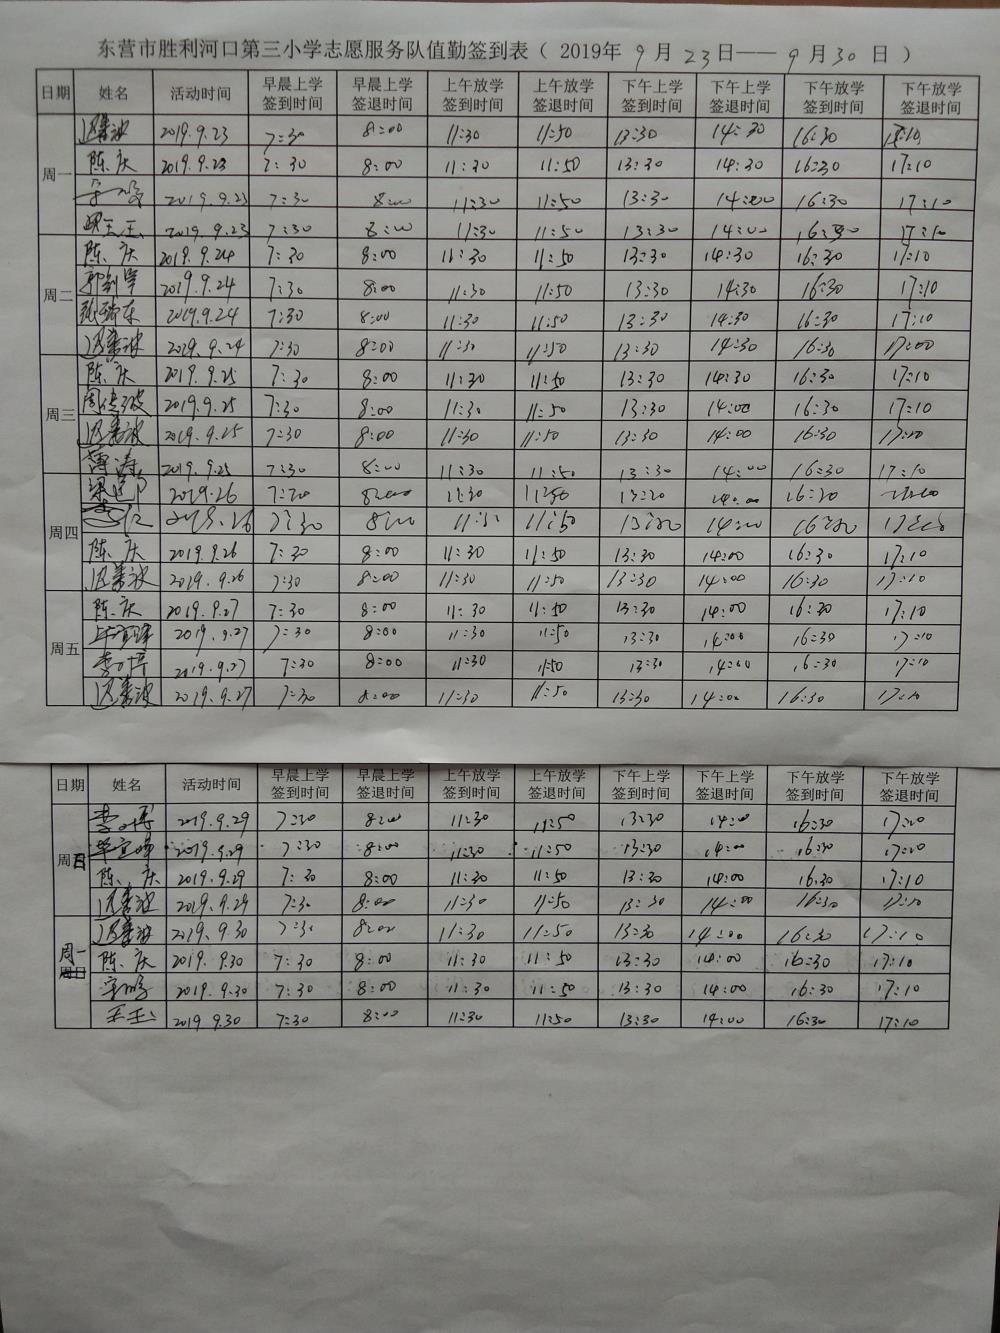 东营市胜利河口第三小学志愿服务队值勤签到表（ 2019年 9 月 23 日—— 9 月 30 日 ）
日期 姓名 活动时间 早晨上学签到时间 早晨上学签退时间 上午放学签到时间 上午放学签退时间 下午上学签到时间 下午上学签退时间 下午放学签到时间 下午放学签退时间
周一 2019.9.23 7:30 8:00 11:30 11:50 13:30 14:30 16:30
陈庆 2019.9.23 7:30 8:00 11:30 11:50 13:30 14:30 16:30 17:10
2019.9.23 7:30 8:00 11:30 11:50 13:30 14:00 16:30 17:10
2019.9.23 7:30 8:00 11:30 11:50 13:30 14:00 16:30 17:10
周二 陈庆 2019.9.24 7:30 8:00 11:30 11:50 13:30 14:30 16:30 17:10
2019.9.24 7:30 8:00 11:30 11:50 13:30 14:30 16:30 17:10
2019.9.24 7:30 8:00 11:30 11:50 13:30 14:30 16:30 17:10
2019.9.24 7:30 8:00 11:30 11:50 13:30 14:30 16:30 17:00
周三 陈庆 2019.9.25 7:30 8:00 11:30 11:50 13:30 14:30 16:30 17:10
2019.9.25 7:30 8:00 11:30 11:50 13:30 14:00 16:30 17:10
2019.9.25 7:30 8:00 11:30 11:50 13:30 14:00 16:30
2019.9.25 7:30 8:00 11:30 11:50 13:30 14:00 16:30 17:10
周四 2019.26 8:00 11:30 11:50 14:00
8:00 11:50 14:00
陈庆 2019.9.26 7:30 8:00 11:30 11:50 13:30 14:00 16:30 17:10
2019.9.26 7:30 8:00 11:30 11:50 13:30 14:00 16:30 17:10
周五 陈庆 2019.9.27 7:30 8:00 11:30 11:50 13:30 14:00 16:30 17:10
2019.9.27 7:30 8:00 11:30 11:50 13:30 14:00 16:30 17:10
2019.9.27 7:30 8:00 11:30 11:50 13:30 14:00 16:30 17:10
2019.9.27 7:30 8:00 11:30 11:50 13:30 14:00 16:30 17:10
日期 姓名 活动时间 早晨上学签到时间 早晨上学签退时间 上午放学签到时间 上午放学签退时间 下午上学签到时间 下午上学签退时间 下午放学签到时间 下午放学签退时间
周日 2019.9.29 7:30 8:00 11:30 11:50 13:30 14:00 16:30
2019.9.29 7:30 8:00 11:30 11:50 13:30 14:00 16:30
陈庆 2019.9.29 7:30 8:00 11:30 11:50 13:30 14:00 16:30 17:10
2019.9.29 7:30 8:00 11:30 11:50 13:30 14:00 16:30 17:10
周一 2019.9.30 7:30 8:00 11:30 11:50 13:30 14:00 16:30 17:10
陈庆 2019.9.30 7:30 8:00 11:30 11:50 13:30 14:00 16:30 17:10
2019.9.30 7:30 8:00 11:30 11:50 13:30 14:00 16:30 17:10
2019 9.30 7:30 8:00 11:30 11:50 13:30 14:00 16:30 17:10